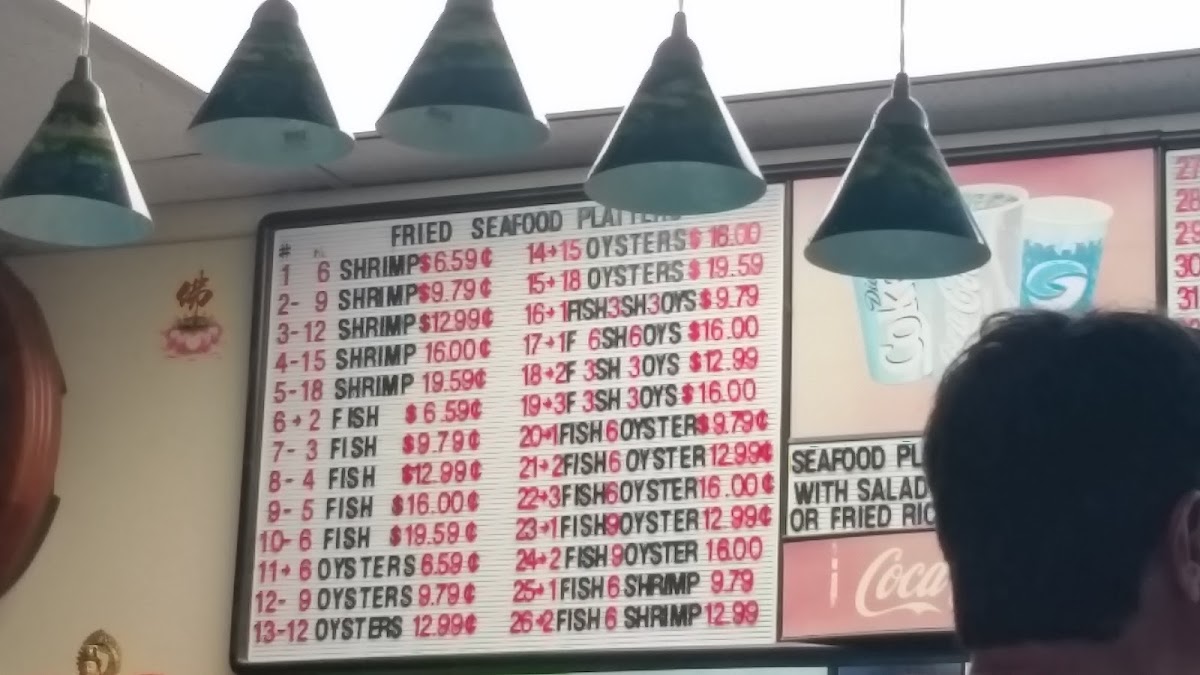 佛
FRIED SEAFOOD PLATTERS
#
1 6 SHRIMP $6.59¢
2- 9 SHRIMP $9.79¢
3-12 SHRIMP $12.99¢
4-15 SHRIMP 16.00¢
5-18 SHRIMP 19.59¢
6+2 FISH $6.59¢
7- 3 FISH $9.79¢
8- 4 FISH $12.99¢
9- 5 FISH $16.00¢
10- 6 FISH $19.59¢
11+ 6 OYSTERS 6.59¢
12- 9 OYSTERS 9.79¢
13-12 OYSTERS 12.99¢
14+15 OYSTERS $16.00
15+18 OYSTERS $19.59
16+1FISH3SH3OYS $9.79
17+1F 6SH6OYS $16.00
18+2F 3SH 3OYS $12.99
19+3F 3SH 3OYS $16.00
20+1FISH6OYSTER$9.79¢
21+2FISH6 OYSTER 12.99¢
22+3FISH6OYSTER16.00¢
23+1FISH9OYSTER 12.99¢
24+2 FISH 9OYSTER 16.00
25+1FISH6 SHRIMP 9.79
26+2FISH6 SHRIMP 12.99
Coke
SEAFOOD
WITH SALAD
OR FRIED
Coca
27
28
29
30
31